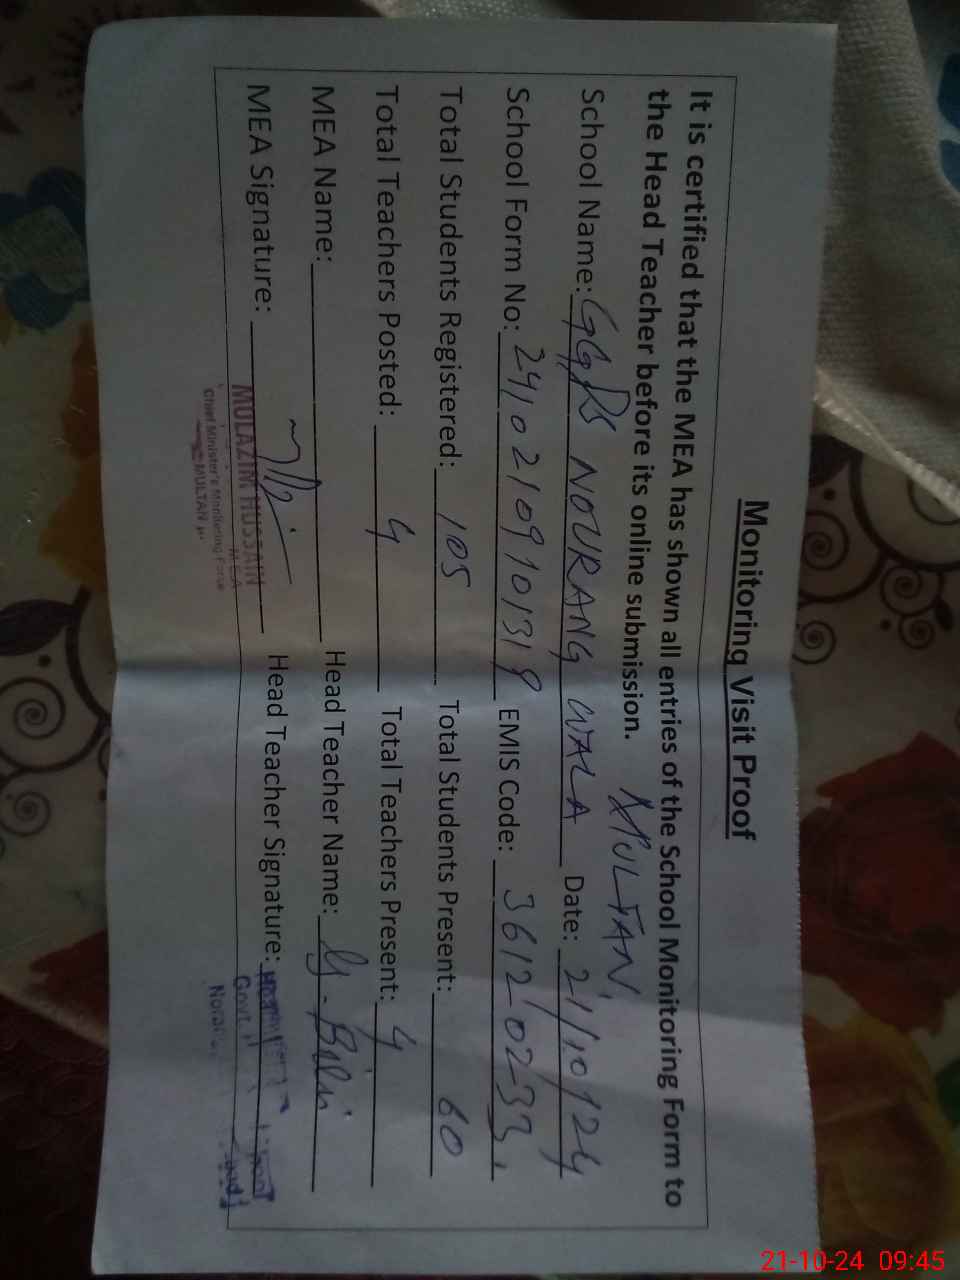 Monitoring Visit Proof
It is certified that the MEA has shown all entries of the School Monitoring Form to
the Head Teacher before its online submission.
MULTAN,
School Name: NOURANG WALA Date: 21/10/24
School Form No: 2410210910319 EMIS Code: 36120233
Total Students Registered: 105 Total Students Present: 60
Total Teachers Posted: 4 Total Teachers Present: 4
MEA Name: Head Teacher Name:
MEA Signature: Head Teacher Signature:
MULAZIM HUSSAIN
MEA
Chief Minister's Monitoring Force
MULTAN
Govt.
21-10-24 09:45